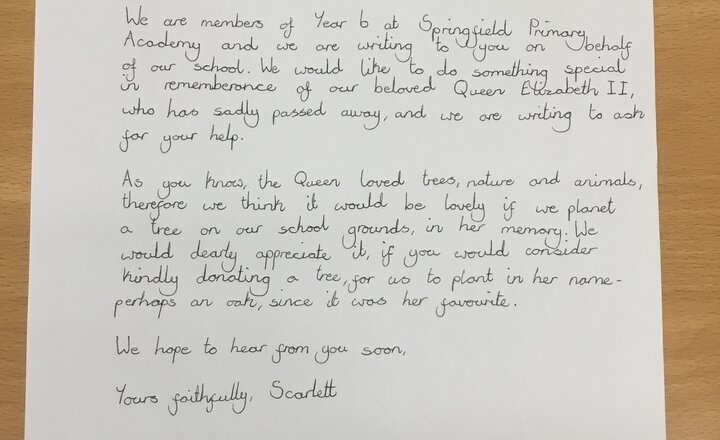 We are members of Year 6 at Springfield Primary
Academy and we are writing to you on behalf
of our school. We would like to do something special
in rememberance of our beloved Queen Elizabeth II,
who has sadly passed away, and we are writing to ask
for your help.
As you know, the Queen loved trees, nature and animals,
therefore we think it would be lovely if we planet
a tree on our school grounds, in her memory. We
would dearly appreciate it, if you would consider
kindly donating a tree, for us to plant in her name-
perhaps an oak, since it was her favourite.
We hope to hear from you soon,
Yours faithfully, Scarlett